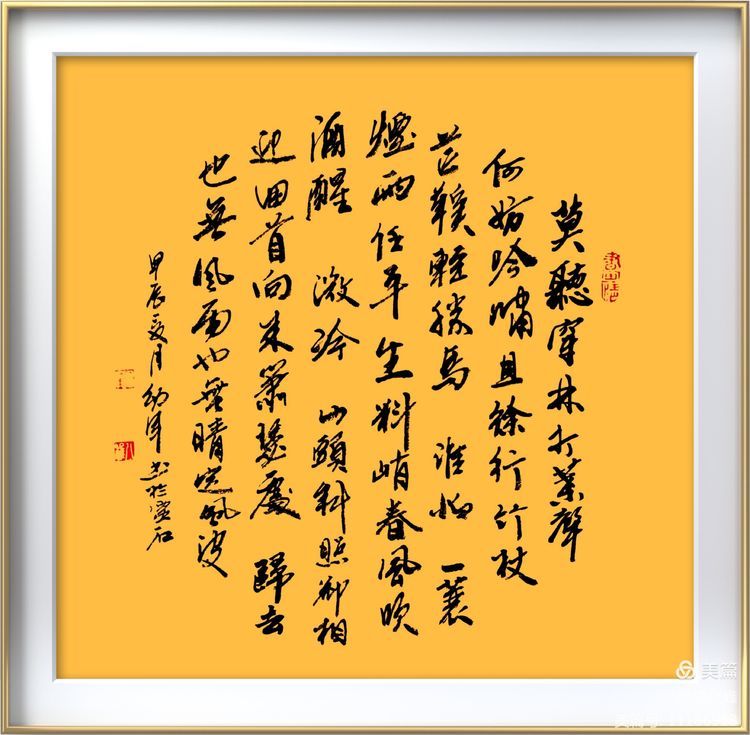 莫聽穿林打葉聲
何妨吟嘯且徐行竹杖
芒鞵輕勝馬 誰怕 一蓑
煙雨任平生料峭春風吹
酒醒 微冷 山頭斜照卻相
迎回首向來蕭瑟處 歸去
也無風雨也無晴定風波
甲辰夏月 書於 石
美篇